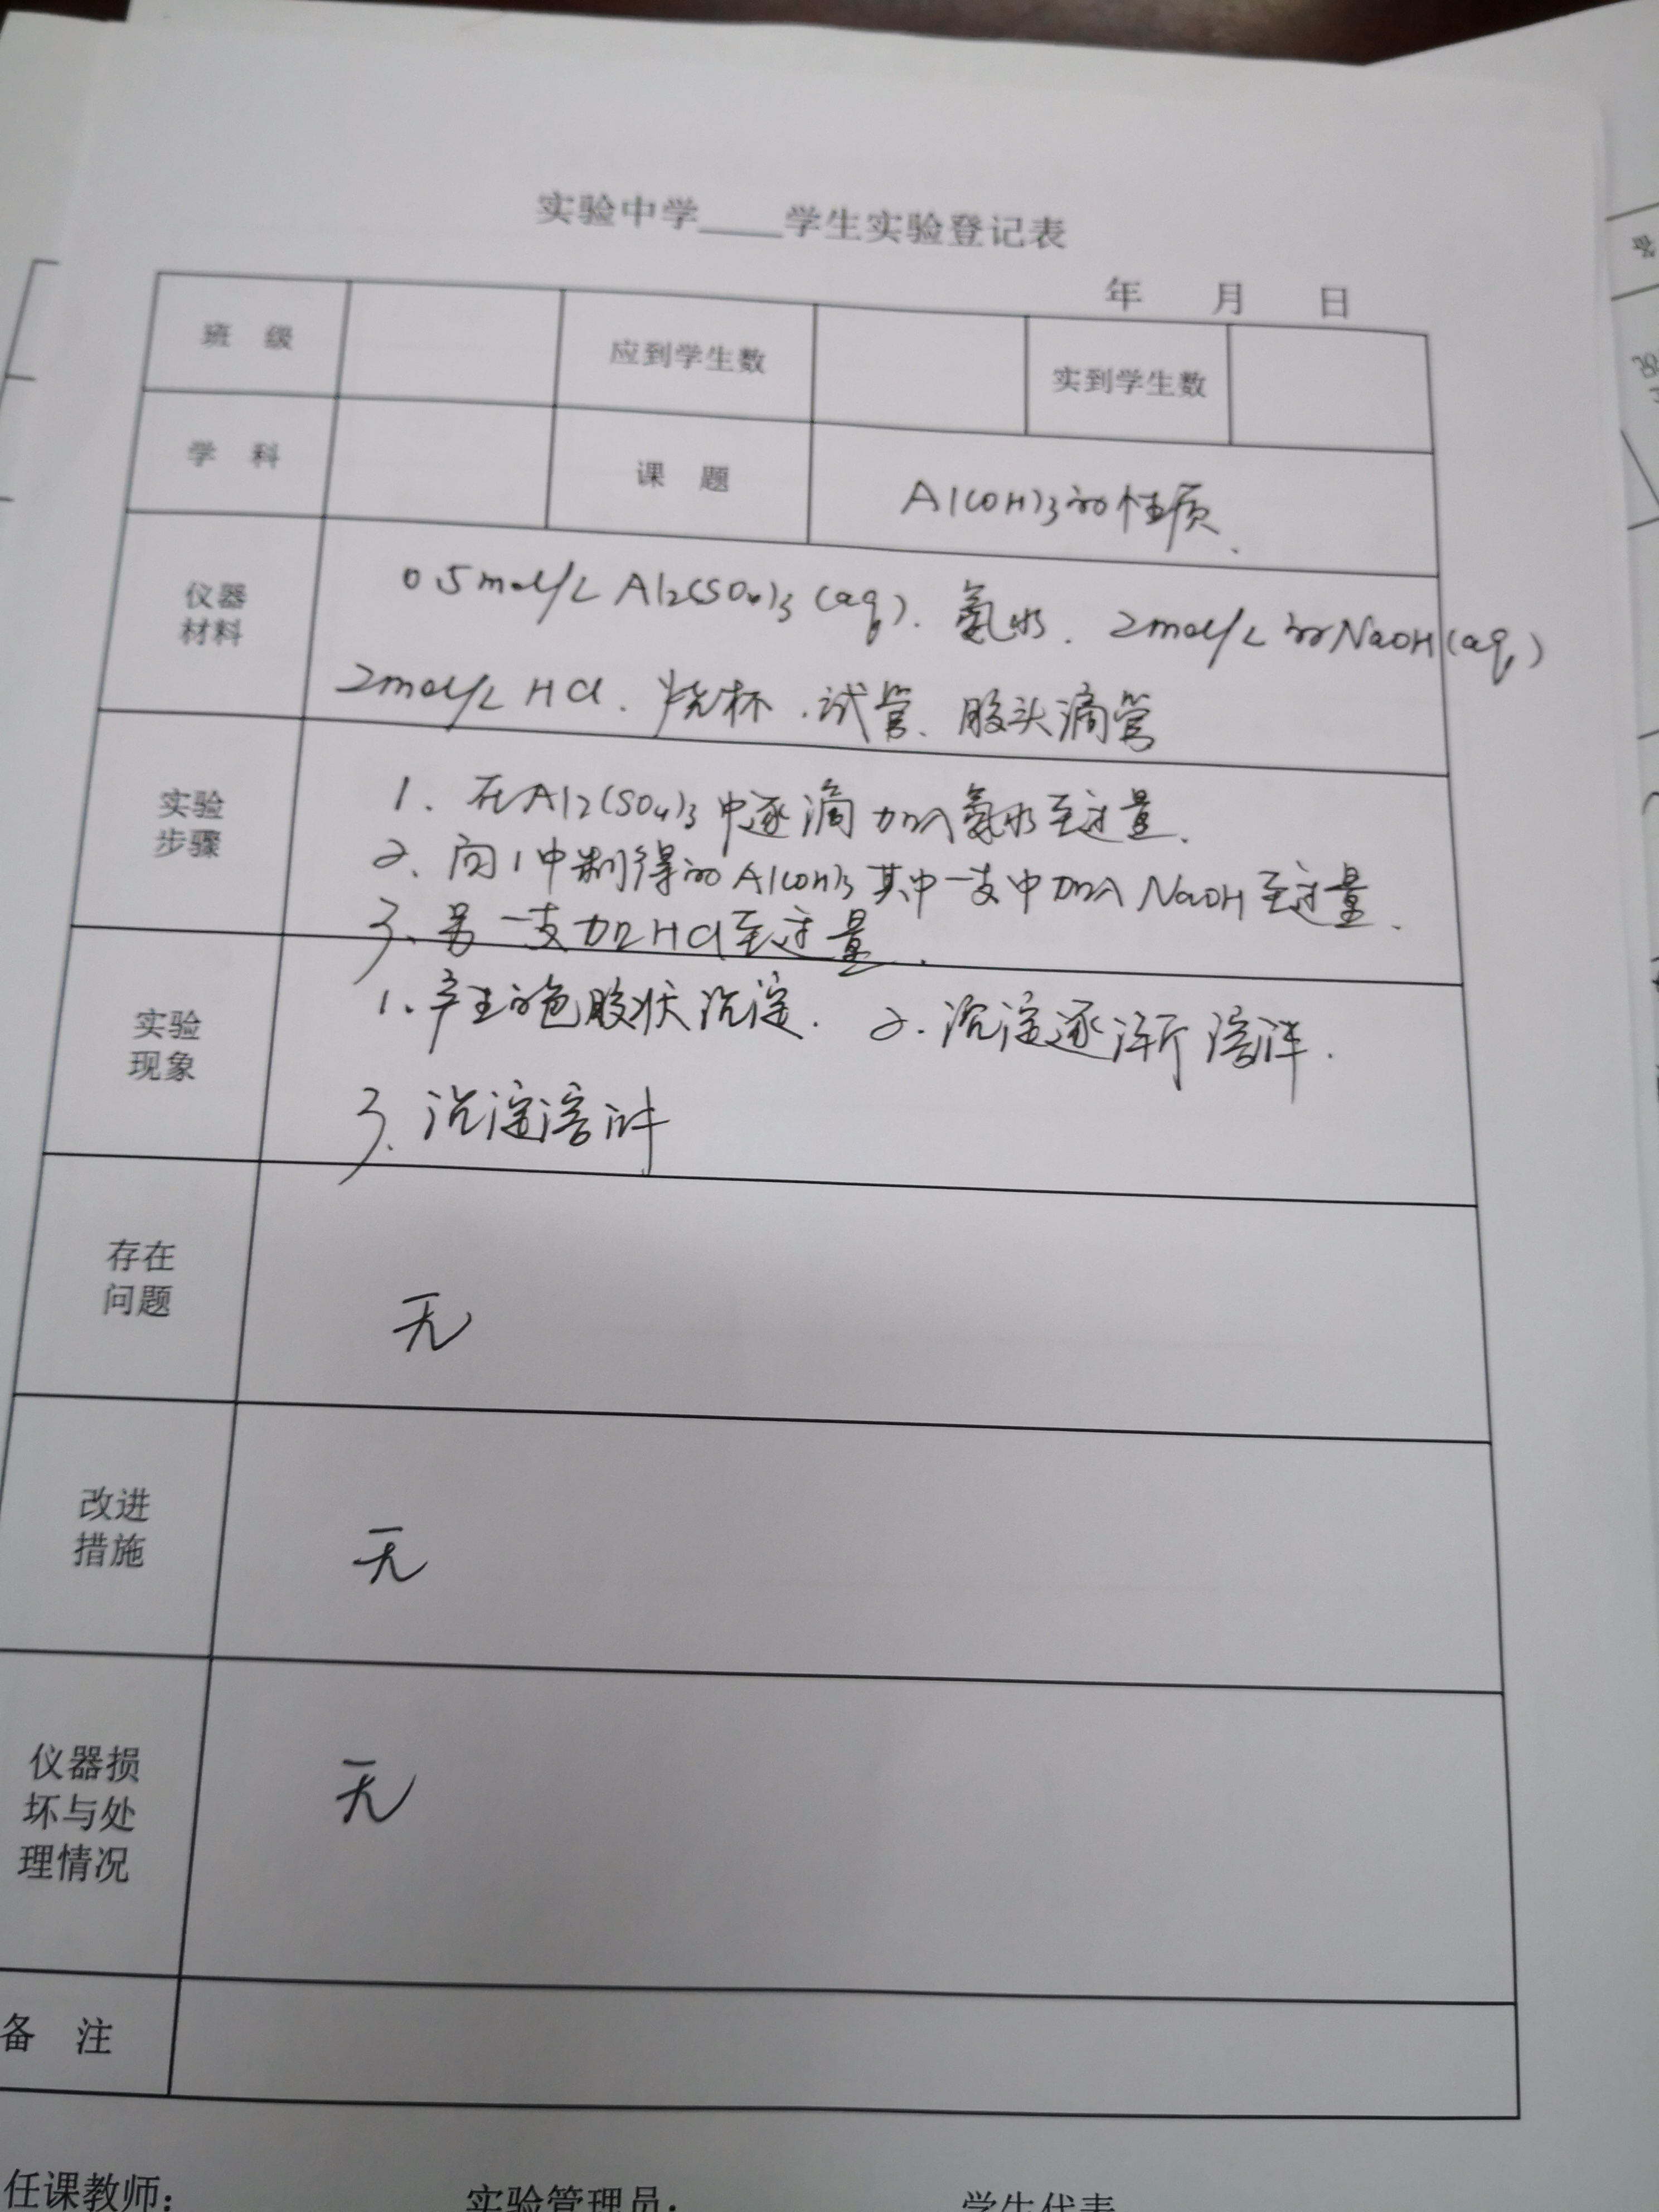 实验中学____学生实验登记表
年 月 日
班 级 应到学生数 实到学生数
学 科 课 题 Al(OH)3的性质.
仪器
材料
0.5mol/L Al2(SO4)3 (aq). 氨水. 2mol/L的NaOH(aq)
2mol/L HCl. 烧杯. 试管. 胶头滴管
实验
步骤
1. 在Al2(SO4)3中逐滴加入氨水至过量.
2. 向1中制得的Al(OH)3其中一支中加入NaOH至过量.
3. 另一支加HCl至过量.
实验
现象
1. 产生白色胶状沉淀. 2. 沉淀逐渐溶洋.
3. 沉淀溶
存在
问题
无
改进
措施
无
仪器损
坏与处
理情况
无
备 注
任课教师: 实验管理员: 学生代表